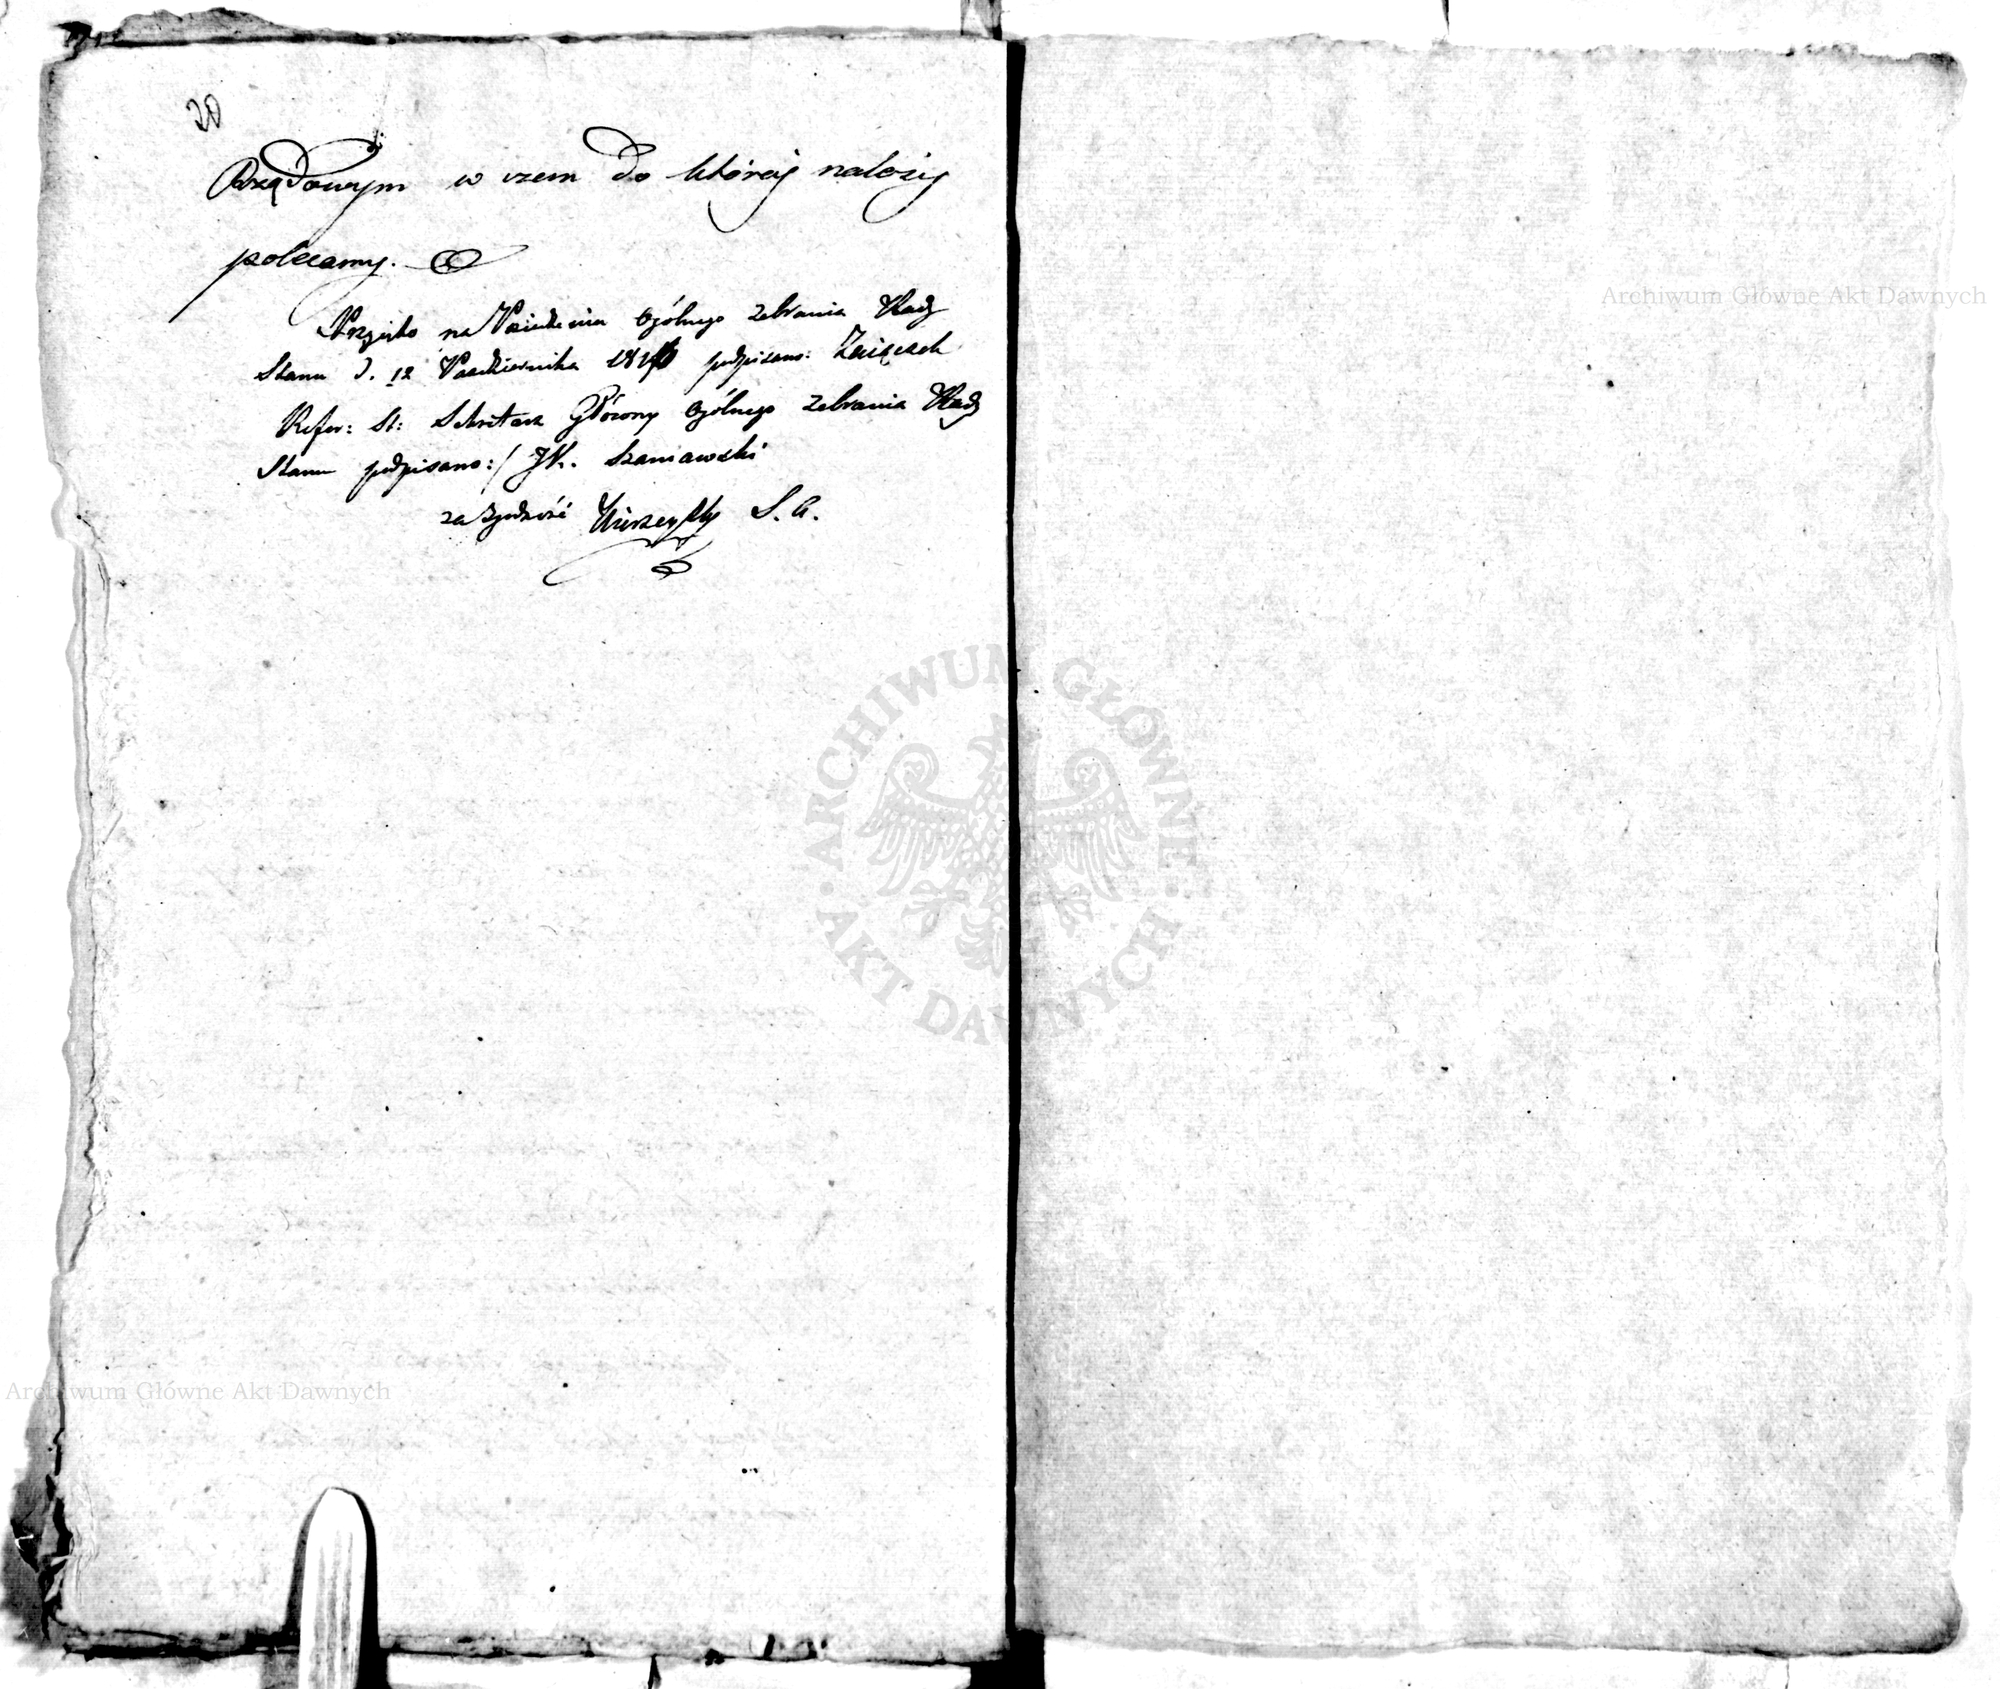 20
Rządowym w czem do któréj należy
polecamy.
Przyięto na Posiedzeniu Ogólnego Zebrania Rady
Stanu d. 12 Października 1816 podpisano: Zaiączek
Refer: St: Sekretarz Główny Ogólnego Zebrania Rady
Stanu podpisano:/ JK. Szaniawski
za zgodność S. A.
Archiwum Główne Akt Dawnych
ARCHIWUM GŁÓWNE AKT DAWNYCH
Archiwum Główne Akt Dawnych